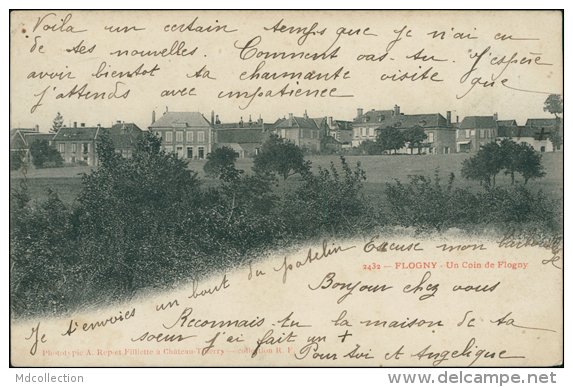 Voila un certain temps que je n'ai eu
de tes nouvelles. Comment vas-tu. J'espère
avoir bientot ta charmante visite que
j'attends avec impatience
Excuse mon barbouillage
2432 — FLOGNY - Un Coin de Flogny
Je t'envoies un bout du patelin
Bonjour chez vous
Reconnais-tu la maison de ta
soeur j'ai fait un +
Pour toi et Angelique
Phototypie A. Rep et Filliette à Château-Thierry — collection R. F.
MDCollection
delcampe.net